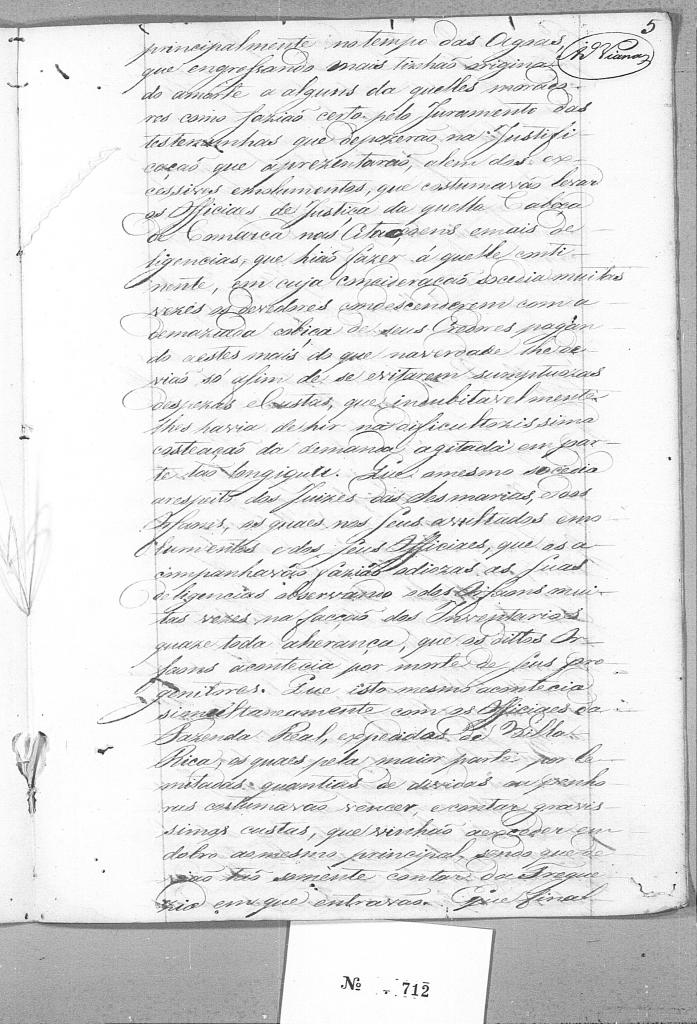 5
Vianna
principalmente no tempo das Agoas,
que engrossando mais tinhão origina-
do amorte a alguns da quelles morado-
res como fazião certo pelo Juramento das
testemunhas que depozerão na Justifi-
cação que aprezentarão, alem dos ex-
cessivos emolumentos, que costumavão levar
os Officiaes de Justiça da quella Cabeça
de Comarca nas Citaçoens emais de-
ligencias, que hião fazer á quelle conti-
nente, em cuja consideração socedia muitas
vezes os devedores condescenderem com a
demaziada cobiça de seus Credores pagan-
do aestes mais do que naverdade lhe de-
vião só afim de se evitarem sumptuozas
despezas eCustas, que indubitavelmente
lhes havia dehir na dificultozissima
costeação da demanda agitada empar-
te tão longiqua. Que omesmo socedia
arespeito dos Juizes das Sesmarias, edos
Orfaons, os quaes nos seus avultados emo-
lumentos edos seus Officiaes, que os a-
companhavão fazião odiozas as suas
deligencias observando os Orfaons mui-
tas vezes na facção dos Inventarios
quaze toda aherança, que os dittos Or-
faons acontecia por morte de seus pro-
genitores. Que isto mesmo acontecia
simultaneamente com os Officiaes da
Fazenda Real, expedidos de Villa
Rica, os quaes pela maior parte por le-
mitadas quantias de dividas ou penho-
ras costumavão vencer, econtar gravis-
simas custas, que vinhão aexceder em
dobro aomesmo principal, sendo que de-
vião tão somente contar da Fregue-
zia em que entravão. Que final-
No 712